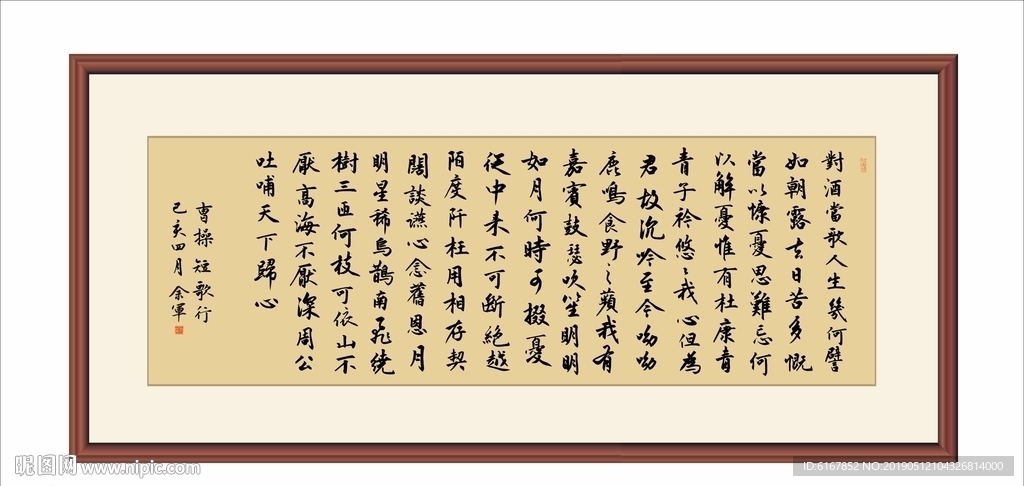 對酒當歌人生幾何譬
如朝露去日苦多慨
當以慷憂思難忘何
以解憂惟有杜康青
青子衿悠〻我心但為
君故沉吟至今呦呦
鹿鳴食野之蘋我有
嘉賓鼓瑟吹笙明明
如月何時可掇憂
從中來不可斷絕越
陌度阡枉用相存契
闊談讌心念舊恩月
明星稀烏鵲南飛繞
樹三匝何枝可依山不
厭高海不厭深周公
吐哺天下歸心
曹操短歌行
己亥四月余軍
昵图网 www.nipic.com
ID:6167852 NO:20190512104326814000